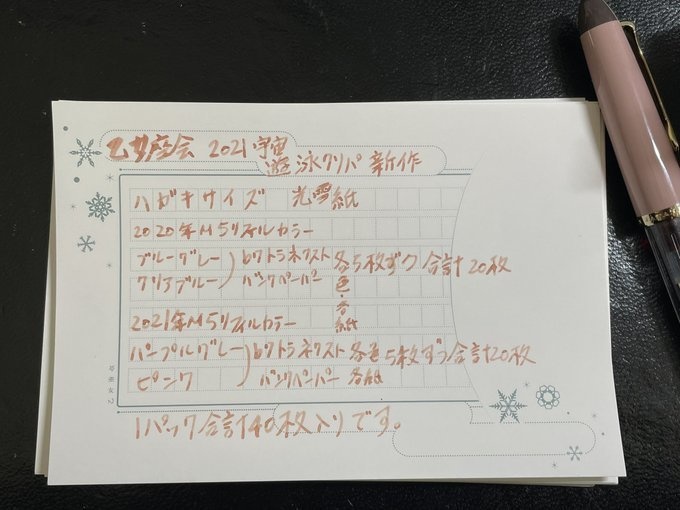 乙女座会 2021 宇宙
遊泳クリパ 新作
ハガキサイズ 光雪紙
2020年M5リフィルカラー
ブルーグレー
クリアブルー
68トラネクスト
バンクペーパー
各5枚ずつ 合計20枚
色・各
紙
2021年M5リフィルカラー
パープルグレー
ピンク
68トラネクスト 各色5枚ずつ合計20枚
バンクペーパー 各紙
1パック合計40枚入りです。